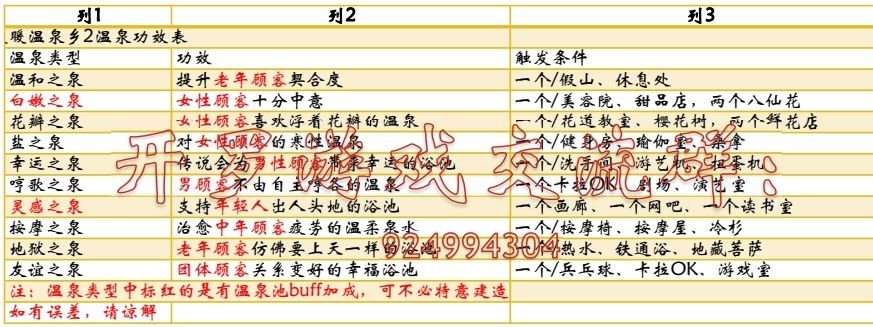 列1 列2 列3
暖温泉乡2温泉功效表
温泉类型 功效 触发条件
温和之泉 提升老年顾客契合度 一个/假山、休息处
白嫩之泉 女性顾客十分中意 一个/美容院、甜品店，两个八仙花
花瓣之泉 女性顾客喜欢浮着花瓣的温泉 一个/花道教室、樱花树，两个鲜花店
盐之泉 对女性顾客的寒性温泉 一个/健身房、瑜伽室、桑拿
幸运之泉 传说会为男性顾客带来幸运的浴池 一个/洗手间、游艺机、扭蛋机
哼歌之泉 男顾客不由自主哼着的温泉 一个卡拉OK、剧场、演艺室
灵感之泉 支持年轻人出人头地的浴池 一个画廊、一个网吧、一个读书室
按摩之泉 治愈中年顾客疲劳的温柔泉水 一个/按摩椅、按摩屋、冷杉
地狱之泉 老年顾客仿佛要上天一样的浴池 一个/热水、铁通浴、地藏菩萨
友谊之泉 团体顾客关系变好的幸福浴池 一个/乒乓球、卡拉OK、游戏室
注：温泉类型中标红的是有温泉池buff加成，可不必特意建造
如有误差，请谅解
开罗游戏交流群：
924994304